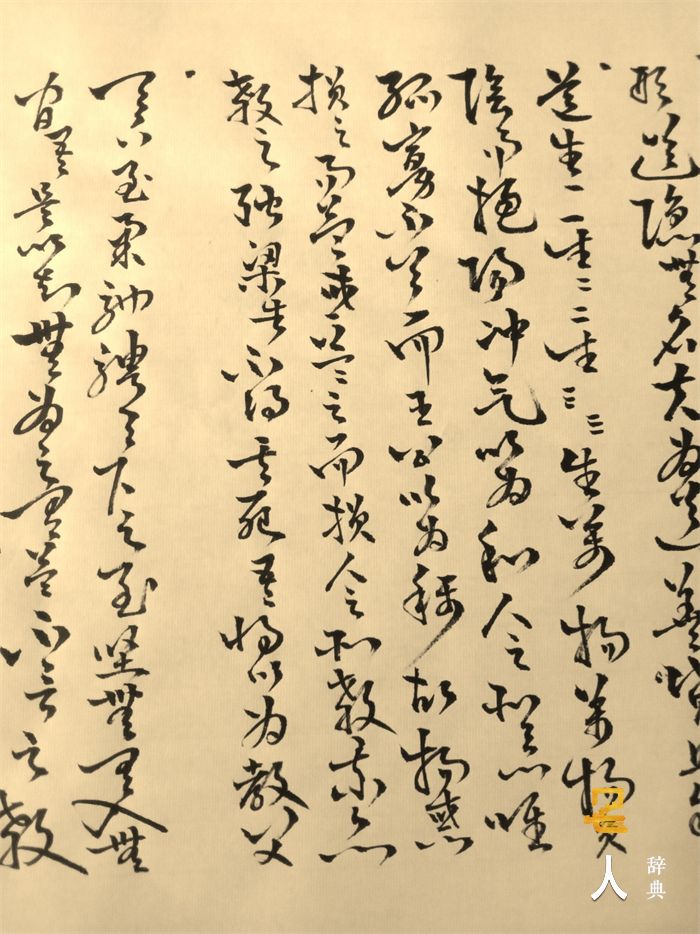 形道隐無名夫为道善貸且
道生一一生二二生三三生萬物萬物負
陰而抱陽冲气以为和人之所惡唯
孤寡不穀而王公以为稱故物或
损之而益或益之而损人之所教我亦
教之强梁者不得其死吾将以为教父
天下至柔馳騁天下之至坚無有入無
間吾是以知無为之有益不言之教
名人辞典